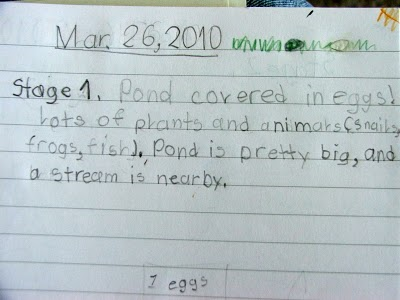 Mar. 26, 2010
Stage 1. Pond covered in eggs!
Lots of plants and animals (snails,
frogs, fish). Pond is pretty big, and
a stream is nearby.
1 eggs